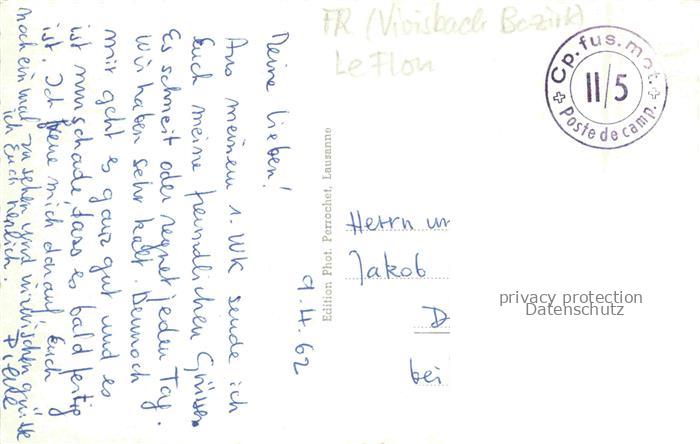 9.4.62
Meine lieben!
Aus meinem 1. WK sende ich
Euch meine freundlichen Grüsse
Es schneit oder regnet jeden Tag.
Wir haben sehr kalt. Dennoch
mir geht es ganz gut und es
ist nur schade dass es bald fertig
ist. Ich freue mich darauf, Euch
noch einmal zu sehen und inzwischen grüsse
ich Euch herzlich.
Edition Phot. Perrochet, Lausanne
FR (Vivisbach Bezirk)
Le Flon
Cp. fus. mot.
II/5
Poste de camp.
Herrn un
Jakob
D
bei
privacy protection
Datenschutz